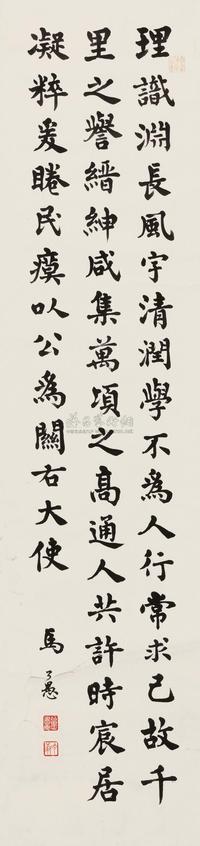 理識淵長風宇清潤學不為人行常求己故千
里之譽縉紳咸集萬頃之高通人共許時宸居
凝粹爰睠民瘼以公為關右大使
馬公愚